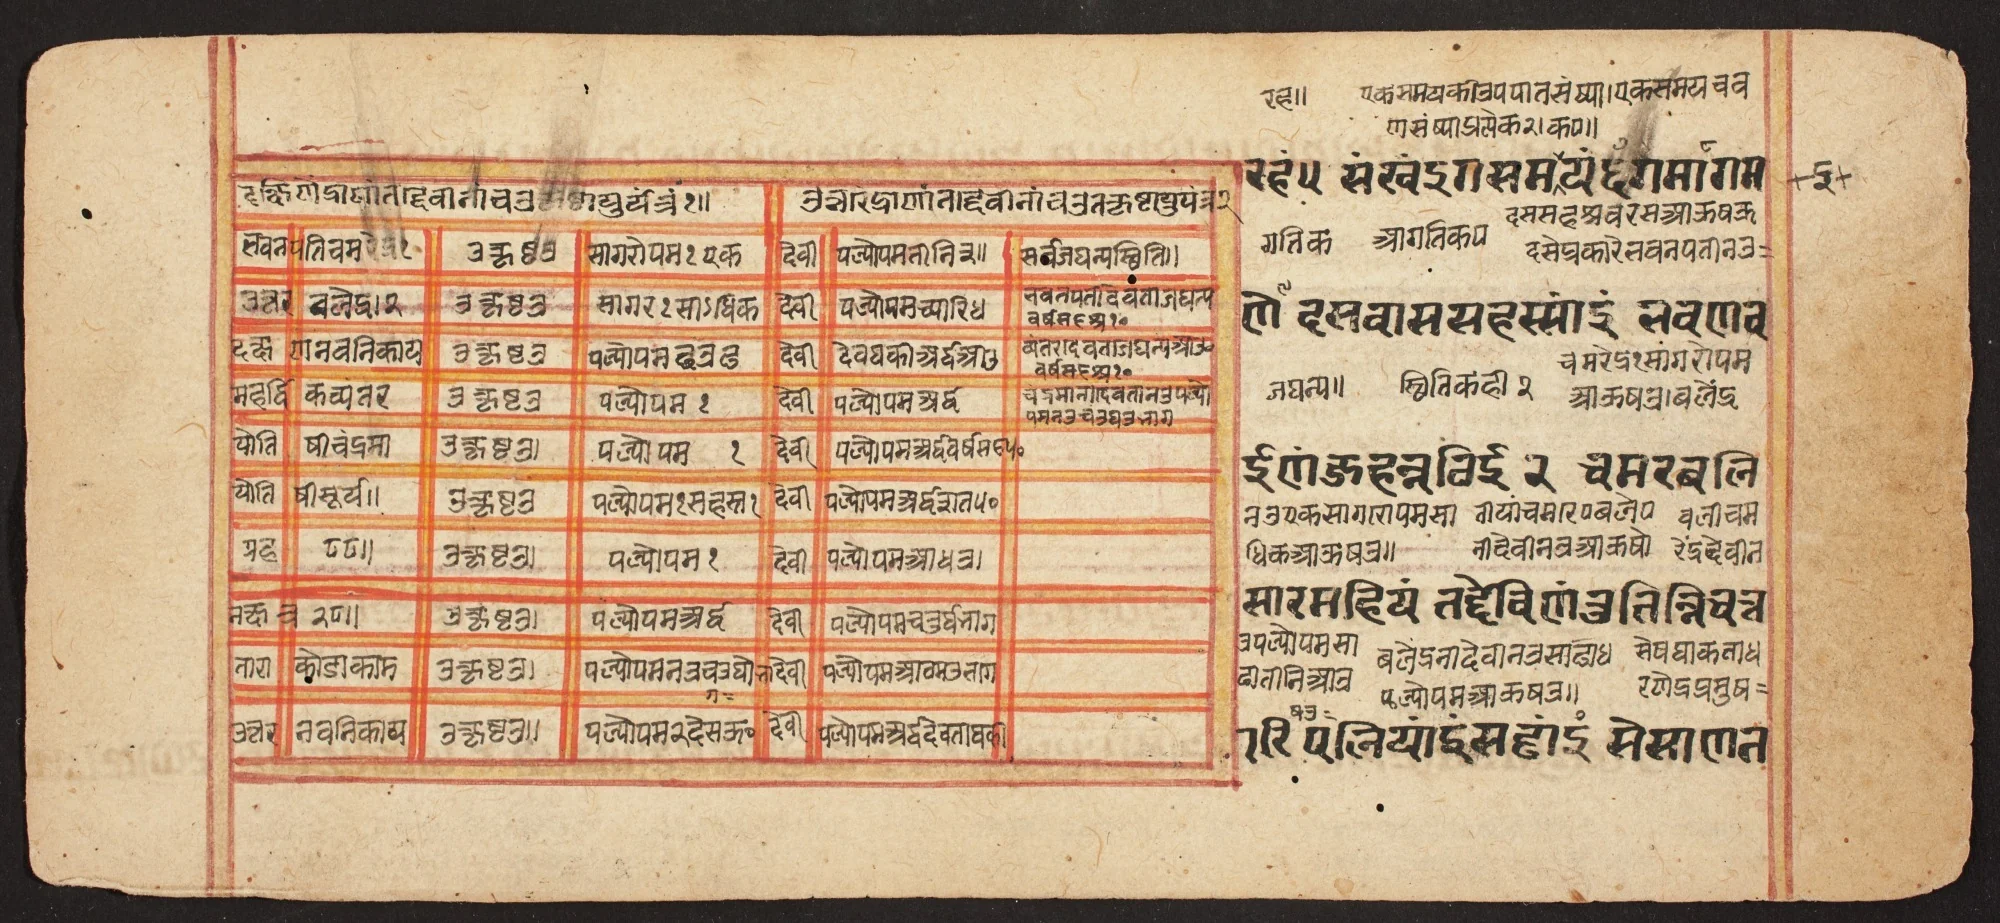 दक्षिणेंद्राणांतद्देवीनांचउत्कृष्टायुर्यंत्रं१॥ उत्तरिंद्राणांतद्देवीनांचउतकृष्टायुयंत्र२
भवनपतिचमरेंद्र१ उत्कृष्टउ सागरोपम१एक देवी पल्योपमतीनि३॥ सर्वजघन्यस्थिति।।
उत्तर बलेंद्र।२ उत्कृष्टउ सागर१साऽधिक देवी पल्योपमच्यारिध भवनपतीदेवताजघन्य
वर्षसहस्र१०
दक्ष णनवनिकाय उत्कृष्टउ पल्योपमदुउढ देवी देवथकीअर्द्धआउ व्यंतरादेवताजघन्यआउ॰
वर्षसहस्र१०
महर्द्धि कव्यंतर उत्कृष्टउ पल्योपम१ देवी पल्योपमअर्द्ध चंद्रमानादेवतानउपल्यो
पमनउचउथउभाग
योति षीचंद्रमा उत्कृष्टउ। पल्योपम १ देवी पल्योपमअर्द्धवर्षसह५०
योति षीसूर्य॥ उत्कृष्टउ पल्योपम१सहस्र१ देवी पल्योपमअर्द्धशत५०
ग्रह ८८॥ उत्कृष्टउ। पल्योपम१ देवी पल्योपमआधउ।
नक्ष त्र २८॥ उत्कृष्टउ। पल्योपमअर्द्ध देवी पल्योपमचउथभाग
तारा कोडाकोडि उत्कृष्टउ। पल्योपमनउचउथोभा देवी पल्योपमआठमउभाग
ग=
उत्तर नवनिकाय उत्कृष्टउ॥ पल्योपम२देसऊ॰ देवी पल्योपमअर्द्धदेवताथकी
रह॥ एकसमयकीउपपातसंष्या।एकसमयचव
णसंष्याप्रत्येक२।कए॥
रहं॥५ संखंइगसमयंइंगमागम
३
दससहश्रवरसआऊषऊ
गतिक आगतिकए दसेप्रकारेभवनपतीनउ=
णे दसवाससहस्सांइं भवणव
चमरेंद्र१सागरोपम
जघन्य॥ स्थितिकही१ आऊषउ।बलेंद्र
ईणंजहन्नठिई २ चमरबलि
नउएकसागारोपमसा तीयांचमार०बलें० बलीचम
धिकआऊषउ॥ नीदेवीनउआऊषो रेंद्रदेवीन
सारमहियं तद्देवीणंउतिन्निचत्त
उपल्योपमसा बलेंद्रनीदेवीनउसाढाध सेषथाकताध
ढातीनिआउ पल्योपमआऊषउ॥ रणेंद्रप्रमुष=
षउ=
ारि पलियांइंसढांइं सेसाणत